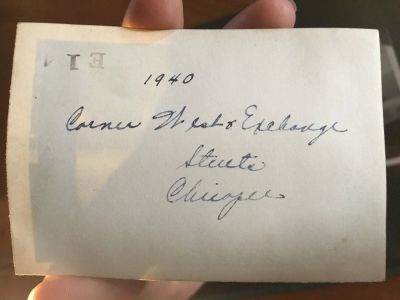 1940
Corner West & Exchange
Streets
Chicopee